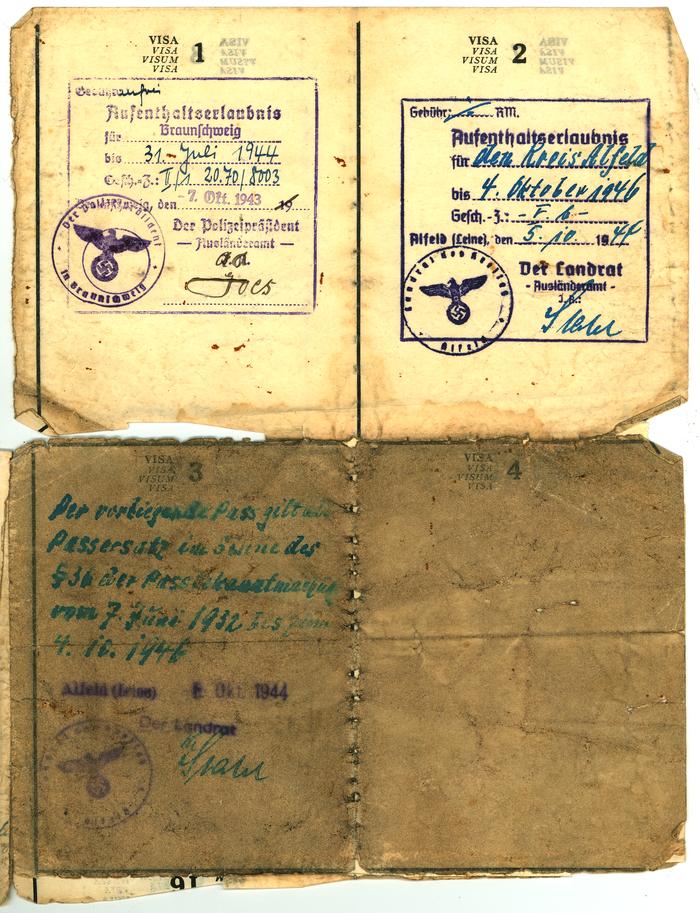 VISA
VISA
VISUM
VISA
1
Gebührenfrei
Aufenthaltserlaubnis
für Braunschweig
bis 31. Juli 1944
Gesch.-Z.: II/1 20.70/8003
Braunschweig, den 7. Okt. 1943 19
Der Polizeipräsident
— Ausländeramt —
Der Polizeipräsident
in Braunschweig
VISA
VISA
VISUM
VISA
2
Gebühr: RM.
Aufenthaltserlaubnis
für den Kreis Alfeld
bis 4. Oktober 1946
Gesch.-Z.:
Alfeld (Leine), den 5. 10. 1944
Der Landrat
- Ausländeramt -
Landrat des Kreises
Alfeld
VISA
VISA
VISUM
VISA
3
Der vorliegende Pass gilt als
Passersatz im Sinne des
§36 der Passbekanntmachung
vom 7. Juni 1932 bis zum
4. 10. 1946
Alfeld (Leine) Okt. 1944
Der Landrat
VISA
VISA
VISUM
VISA
4
16